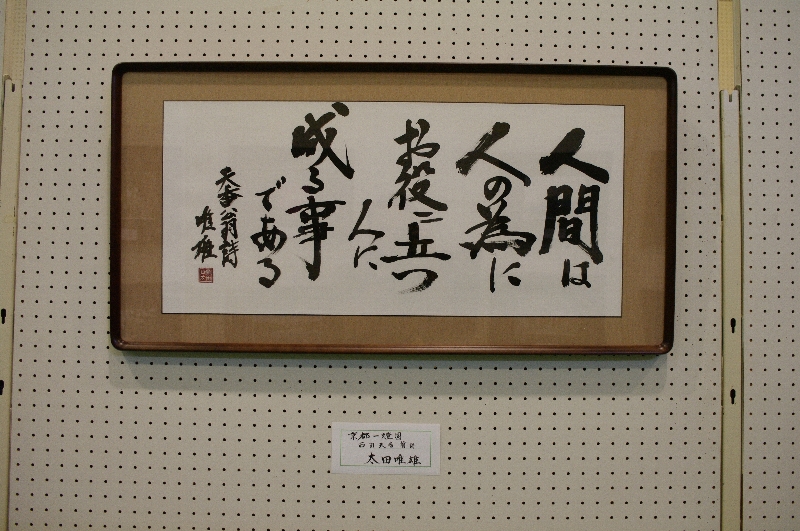 人間は
人の為に
お役ニ立つ
人に
成る事
である
天香翁詩
唯雄
京都一燈園
西田天香 賛句
太田唯雄